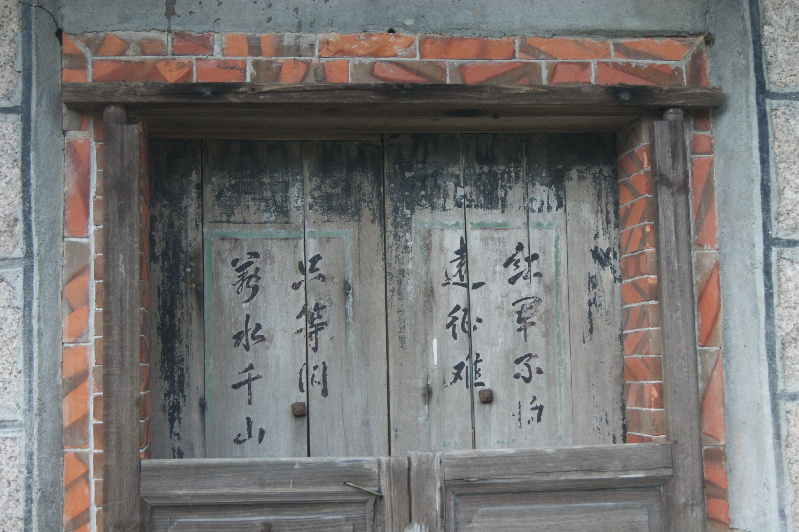 红军不怕
遠征难
萬水千山
只等闲